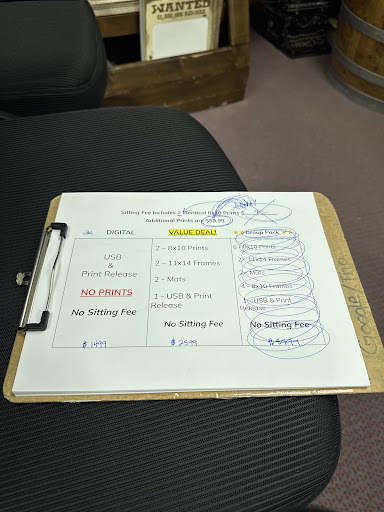 WANTED
$1,000,000 REWARD
Sitting Fee includes 2 identical 8x10 Prints $
Additional Prints are $59.99
DIGITAL
USB
&
Print Release
NO PRINTS
No Sitting Fee
$ 1499
VALUE DEAL!
2 - 8x10 Prints
2 - 11x14 Frames
2 - Mats
1 - USB & Print
Release
No Sitting Fee
$ 2599
Group Pack
6 - 8x10 Prints
2 - 11x14 Frames
2 - Mats
4 - 8x10 Frames
1 - USB & Print
Release
No Sitting Fee
$ 5999